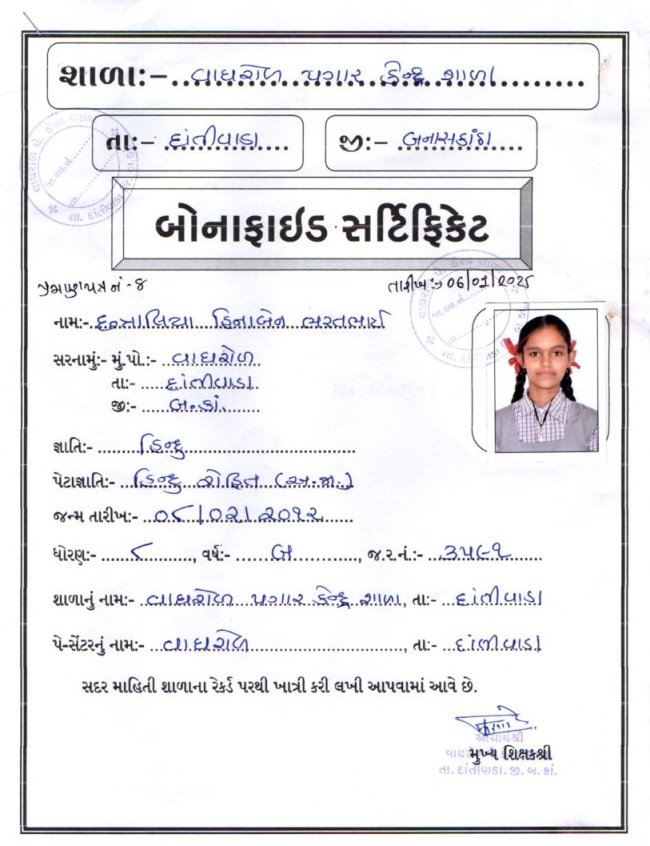 શાળા:- વાઘરોળ પગાર કેન્દ્ર શાળા
તા:- દાંતીવાડા જી:- બનાસકાંઠા
બોનાફાઇડ સર્ટિફિકેટ
પ્રમાણપત્ર નં - 8 તારીખ:- 06/01/2025
નામ:- હિનાબેન ભરતભાઈ
સરનામું:- મું.પો.:- વાઘરોળ
તા:- દાંતીવાડા
જી:- બ.કાં.
જ્ઞાતિ:- હિન્દુ
પેટાજ્ઞાતિ:- હિન્દુ રોહિત (અ.જા.)
જન્મ તારીખ:- ૦૮/૦૨/૨૦૧૨
ધોરણ:- ૮, વર્ષ:- બ, જ.ર.નં.:- ૩૫૮૧
શાળાનું નામ:- વાઘરોળ પગાર કેન્દ્ર શાળા, તા:- દાંતીવાડા
પે-સેંટરનું નામ:- વાઘરોળ, તા:- દાંતીવાડા
સદર માહિતી શાળાના રેકર્ડ પરથી ખાત્રી કરી લખી આપવામાં આવે છે.
આચાર્યશ્રી
મુખ્ય શિક્ષકશ્રી
તા. દાંતીવાડા. જી. બ. કાં.